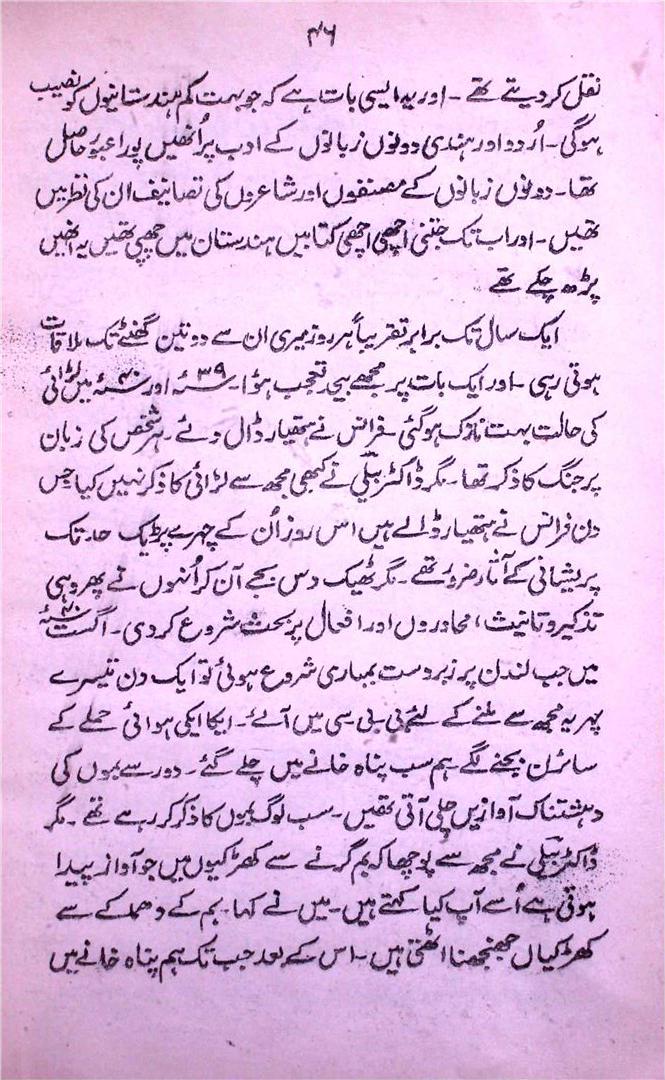 ۴۶
نقل کر دیتے تھے ۔ اور یہ ایسی بات ہے کہ جو بہت کم ہندستانیوں کو نصیب
ہوگی ۔ اُردو اور ہندی دونوں زبانوں کے ادب پر اُنھیں پورا عبور حاصل
تھا ۔ دونوں زبانوں کے مصنفوں اور شاعروں کی تصانیف ان کی نظر میں
تھیں ۔ اور اب تک جتنی اچھی اچھی کتابیں ہندستان میں چھپی تھیں یہ انھیں
پڑھ چکے تھے
ایک سال تک برابر تقریباً ہر روز میری ان سے دو تین گھنٹے تک ملاقات
ہوتی رہی ۔ اور ایک بات پر مجھے بیحد تعجب ہوا ۔ ۳۹ء اور ۴۰ء میں لڑائی
کی حالت بہت نازک ہوگئی ۔ فرانس نے ہتھیار ڈال دئے ۔ ہر شخص کی زبان
پر جنگ کا ذکر تھا ۔ مگر ڈاکٹر بیلی نے کبھی مجھ سے لڑائی کا ذکر نہیں کیا جس
دن فرانس نے ہتھیار ڈالے ہیں اس روز اُن کے چہرے پر ایک حد تک
پریشانی کے آثار ضرور تھے ۔ مگر ٹھیک دس بجے آن کر اُنہوں نے پھر وہی
تذکیر و تانیث ، محاوروں اور افعال پر بحث شروع کر دی ۔ اگست ۴۰ء
میں جب لندن پر زبردست بمباری شروع ہوئی تو ایک دن تیسرے
پہر یہ مجھ سے ملنے کے لئے بی بی سی میں آئے ۔ ایکا ایکی ہوائی حملے کے
سائرن بجنے لگے ہم سب پناہ خانے میں چلے گئے ۔ دور سے بموں کی
دہشتناک آوازیں چلی آتی تھیں ۔ سب لوگ بموں کا ذکر کر رہے تھے ۔ مگر
ڈاکٹر بیلی نے مجھ سے پوچھا کہ بم گرنے سے کھڑکیوں میں جو آواز پیدا
ہوتی ہے اُسے آپ کیا کہتے ہیں ۔ میں نے کہا ۔ بم کے دھماکے سے
کھڑکیاں جھنجھنا اٹھتی ہیں ۔ اس کے بعد جب تک ہم پناہ خانے میں